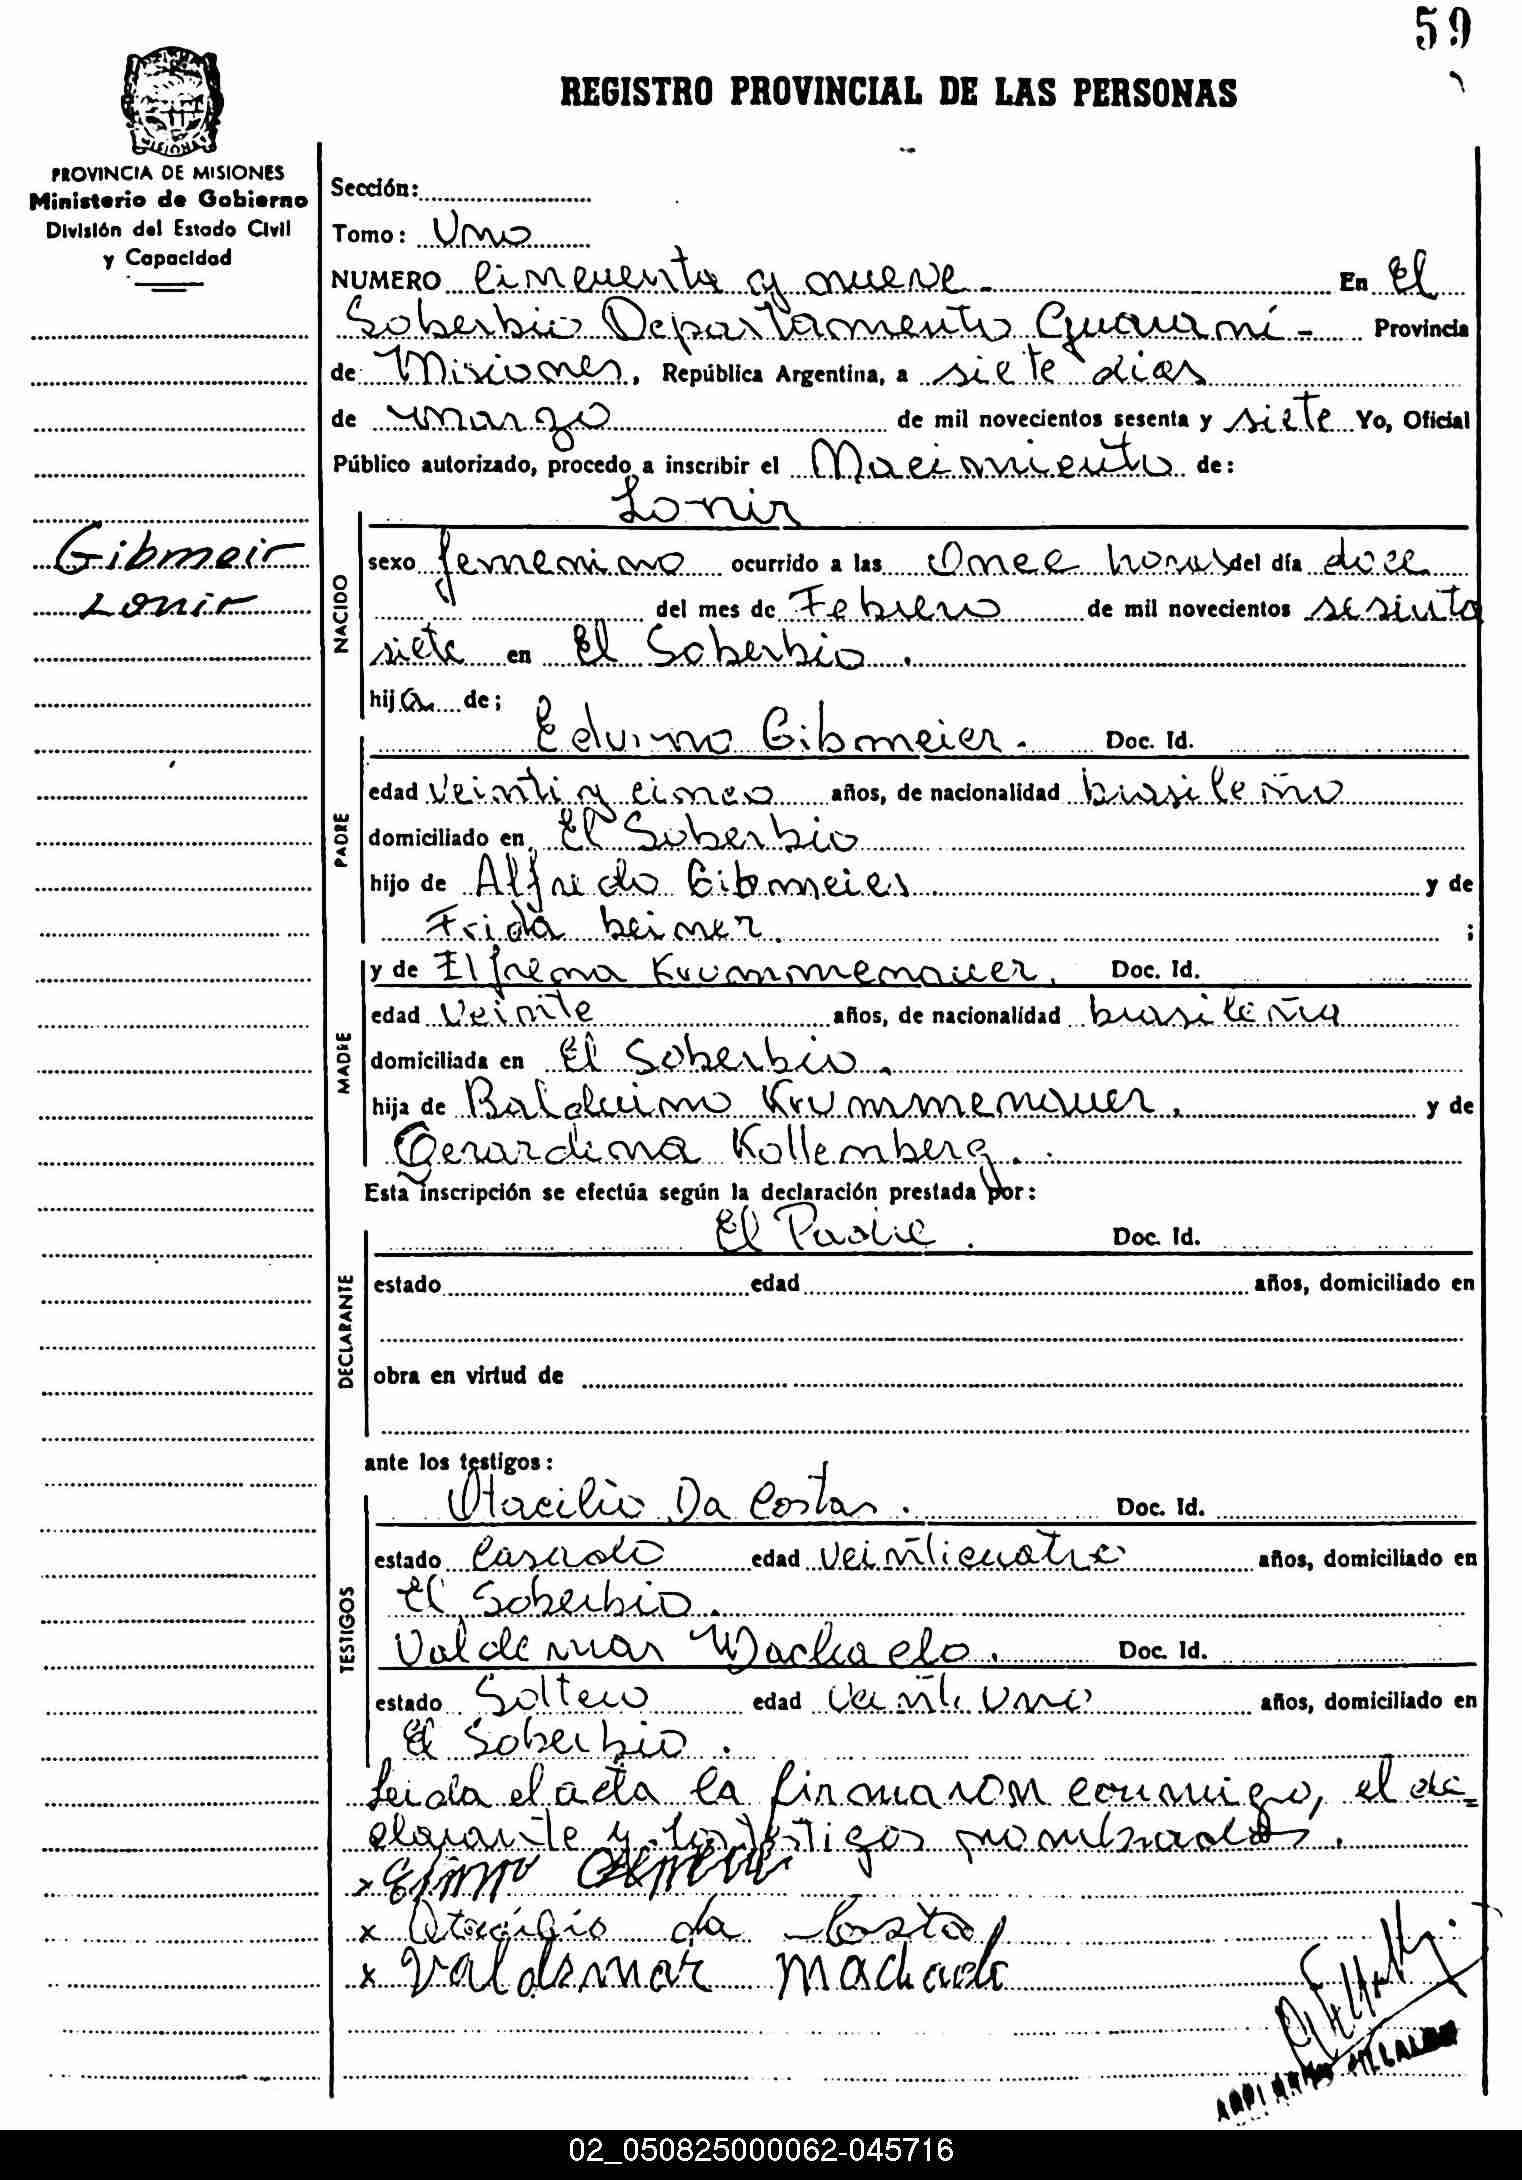 59
REGISTRO PROVINCIAL DE LAS PERSONAS
MISIONES
PROVINCIA DE MISIONES
Ministerio de Gobierno
División del Estado Civil
y Capacidad
Gibmeir
Lonir
Sección:
Tomo: Uno
NUMERO Cincuenta y nueve.- En El
Soberbio Departamento Guaraní - Provincia
de Misiones, República Argentina, a siete días
de marzo de mil novecientos sesenta y siete Yo, Oficial
Público autorizado, procedo a inscribir el Nacimiento de:
Lonir
NACIDO
sexo femenino ocurrido a las Once horas del día doce
del mes de Febrero de mil novecientos sesenta
siete en El Soberbio.
hija de;
Edvino Gibmeier. Doc. Id.
PADRE
edad Veinti y cinco años, de nacionalidad brasileño
domiciliado en El Soberbio
hijo de Alfredo Gibmeier y de
Frida beimer. ;
y de Elfrena Krummenauer. Doc. Id.
MADRE
edad Veinte años, de nacionalidad brasileña
domiciliada en El Soberbio.
hija de Balduino Krummenauer. y de
Gerardina Kollemberg.
Esta inscripción se efectúa según la declaración prestada por:
El Padre. Doc. Id.
DECLARANTE
estado edad años, domiciliado en
obra en virtud de
ante los testigos:
Otacilio Da Costa. Doc. Id.
TESTIGOS
estado Casado edad veinticuatro años, domiciliado en
El Soberbio.
Valdemar Machado. Doc. Id.
estado Soltero edad Veintiuno años, domiciliado en
El Soberbio.
Leida el acta la firmaron conmigo, el de=
clarante y los testigos nombrados.
x
x Otacilio da Costa
x Valdemar Machado
VILLALBA
02_050825000062-045716